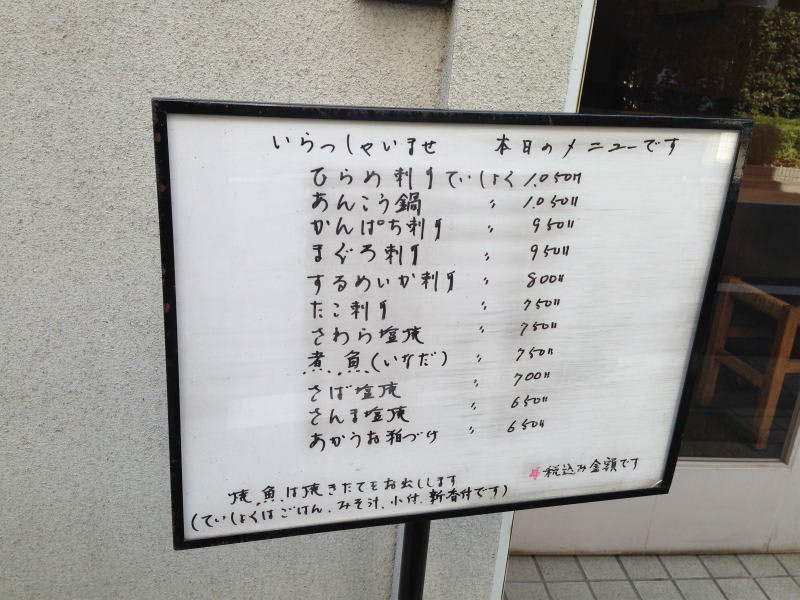 いらっしゃいませ 本日のメニューです
ひらめ刺してい しょく 1.050円
あんこう鍋 〃 1.050〃
かんぱち刺し 〃 950〃
まぐろ刺し 〃 950〃
するめいか刺し 〃 800〃
たこ刺し 〃 750〃
さわら塩焼 〃 750〃
煮魚(いなだ) 〃 750〃
さば塩焼 〃 700〃
さんま塩焼 〃 650〃
あかうお粕づけ 〃 650〃
税込み金額です
焼魚は焼きたてをお出しします
(ていしょくはごはん、みそ汁、小付、新香付です)